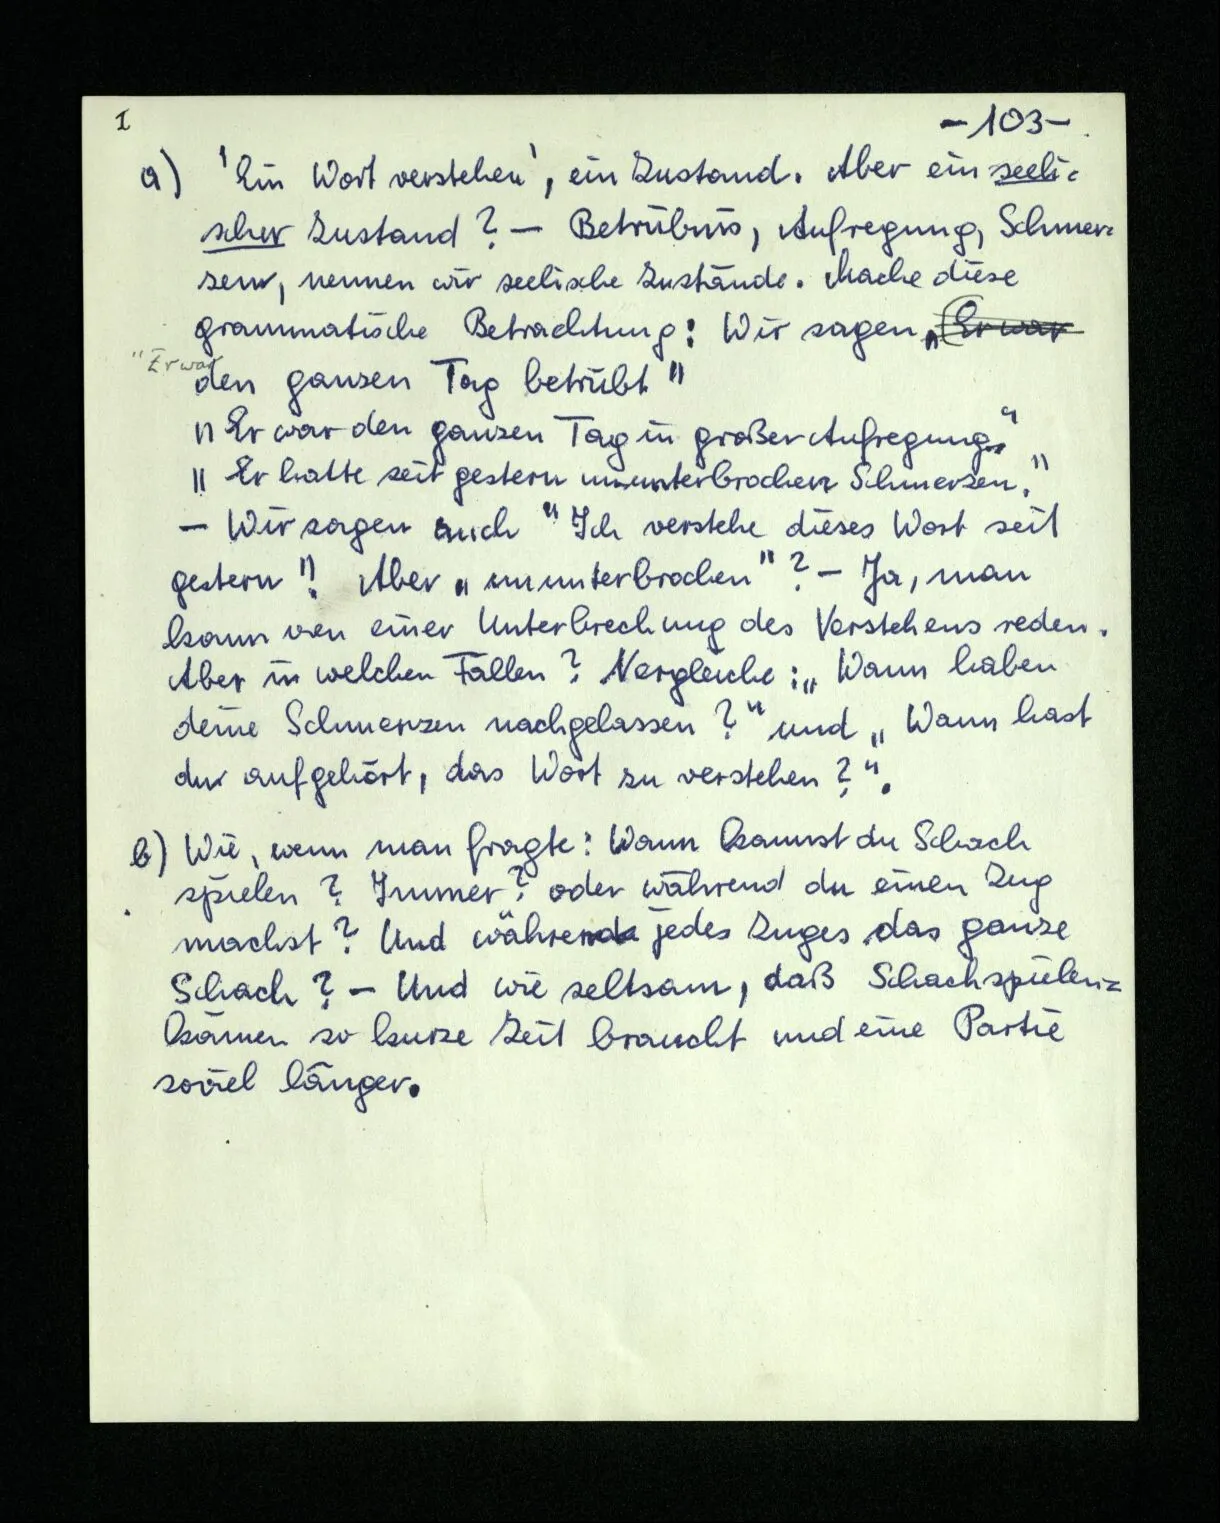 I
-103-.
a) 'Ein Wort verstehen', ein Zustand. Aber ein seeli-
scher Zustand? — Betrübnis, Aufregung, Schmer-
zen, nennen wir seelische Zustände. Mache diese
grammatische Betrachtung: Wir sagen „Er war
"Er war
den ganzen Tag betrübt"
"Er war den ganzen Tag in großer Aufregung."
"Er hatte seit gestern ununterbrochen Schmerzen."
— Wir sagen auch "Ich verstehe dieses Wort seit
gestern"! Aber „ununterbrochen"? — Ja, man
kann von einer Unterbrechung des Verstehens reden.
Aber in welchen Fällen? Vergleiche: „Wann haben
deine Schmerzen nachgelassen?" und „Wann hast
du aufgehört, das Wort zu verstehen?".
b) Wie, wenn man fragte: Wann kannst du Schach
spielen? Immer? oder während du einen Zug
machst? Und während jedes Zuges das ganze
Schach? — Und wie seltsam, daß Schachspielen-
können so kurze Zeit braucht und eine Partie
soviel länger.